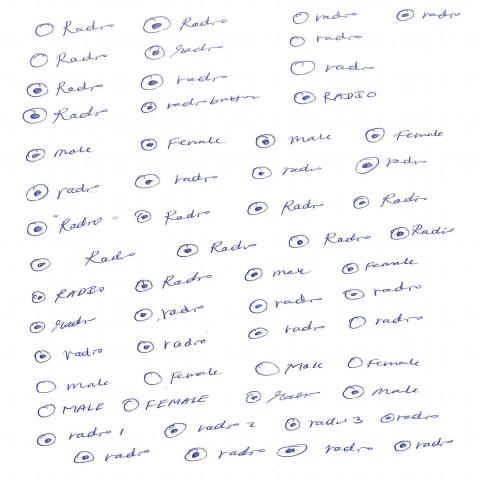 Radro Radro radro radro
Radro radro radro
Radro radro radro
Radro radrobutton RADIO
male Female male Female
radro radro radro radro
Radro Radro Radro Radro
Radro Radro Radro Radio
RADIO Radro male Female
radro radro radro radro
radro radro radro radro
male Female Male Female
MALE FEMALE radro male
radro 1 radro 2 radro 3 radro
radro radro radro radro